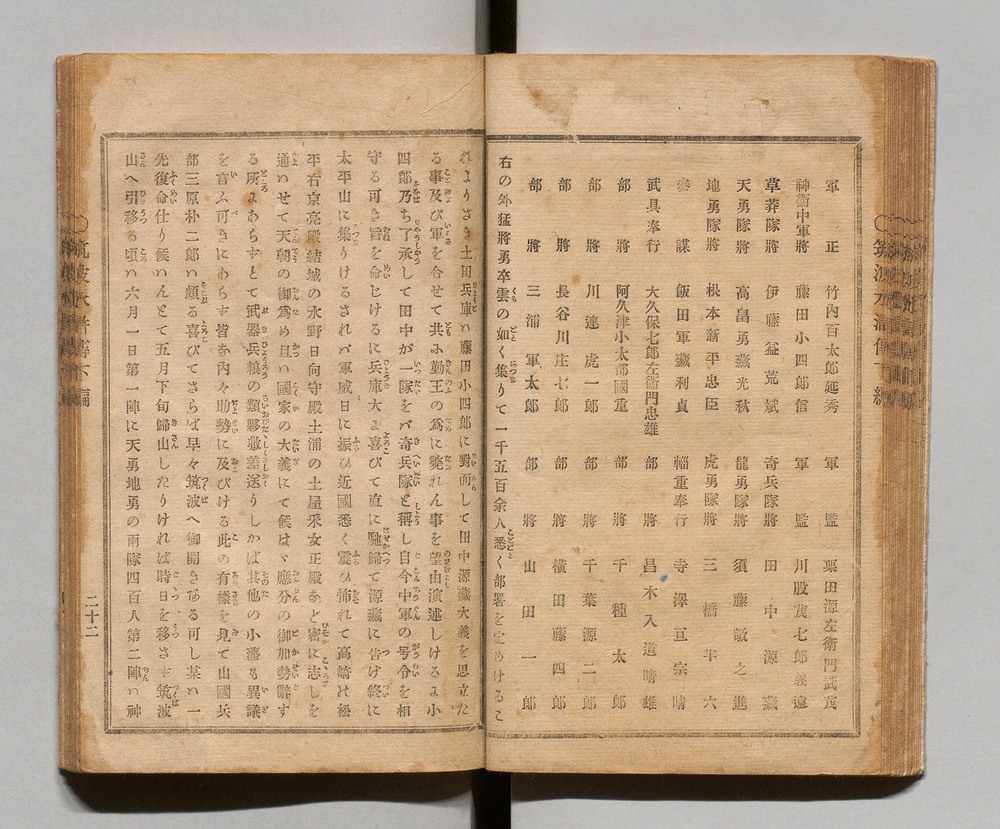 軍正 竹内百太郎延秀 軍監 栗田源左衛門武茂
神衛中軍將 藤田小四郎信 軍監 川股茂七郎義遠
草莽隊將 伊藤益荒斌 奇兵隊將 田中源藏
天勇隊將 高畠勇藏光秋 龍勇隊將 須藤敬之進
地勇隊將 根本新平忠臣 虎勇隊將 三橋半六
參謀 飯田軍藏利貞 輜重奉行 寺澤亘宗晴
武具奉行 大久保七郎左衛門忠雄 部將 昌木入道晴雄
部將 阿久津小太郎國重 部將 千種太郎
部將 川連虎一郎 部將 千葉源二郎
部將 長谷川庄七郎 部將 横田藤四郎
部將 三浦軍太郎 部將 山田一郎
右の外猛將勇卒雲の如く集りて一千五百余人悉く部署を定めけるこ
れよりさき土田兵庫ハ藤田小四郎に對面して田中源藏大義を思立た
る事及び軍を合せて共に勤王の爲に斃れん事を望由演述しけるに小
四郎乃ち了承して田中が一隊をバ奇兵隊と稱し自今中軍の号令を相
守る可き旨を命じけるに兵庫大に喜びて直に馳歸て源藏に告げ終に
太平山に集りけるされバ軍威日に振ひ近國悉く震ひ怖れて高崎の松
平右京亮殿結城の水野日向守殿土浦の土屋采女正殿など密に志しを
通ハせて天朝の御爲め且ハ國家の大義にて候はゞ應分の御加勢辭す
る所にあらずとて武器兵粮の類夥敷差送りしかば其他の小藩も異議
を言ふ可きにあらず皆な内々助勢に及びける此の有樣を見て山國兵
部三原朴二郎ハ頗る喜びてさらば早々筑波へ御開きある可し某ハ一
先復命仕り候ハんとて五月下旬歸山したりければ時日を移さず筑波
山へ引移る頃ハ六月一日第一陣に天勇地勇の兩隊四百人第二陣ハ神
二十二